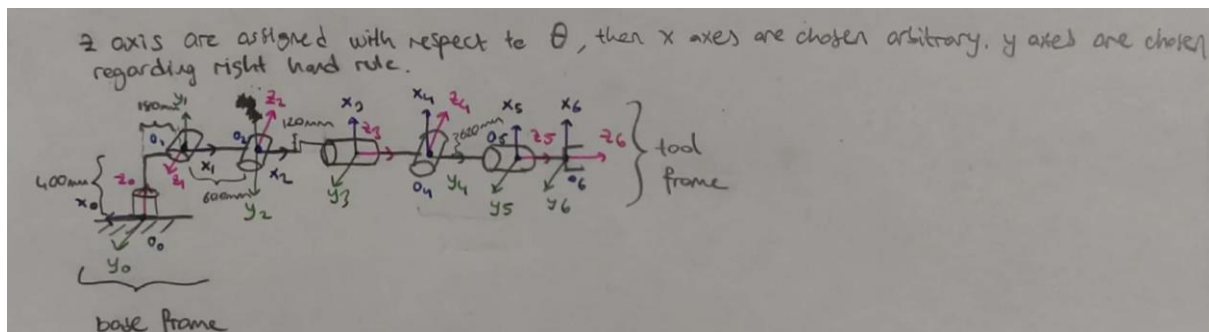 z axis are assigned with respect to θ, then x axes are chosen arbitrary. y axes are chosen
regarding right hand rule.
180mm y1 z2 120mm x3 x4 z4 x5 x6
o1 o2 z3 620mm o5 z5 z6
400mm z0 z1 x1 x2 tool
x0 600mm y2 y3 o4 y4 y5 y6 o6 frame
o0
y0
base frame